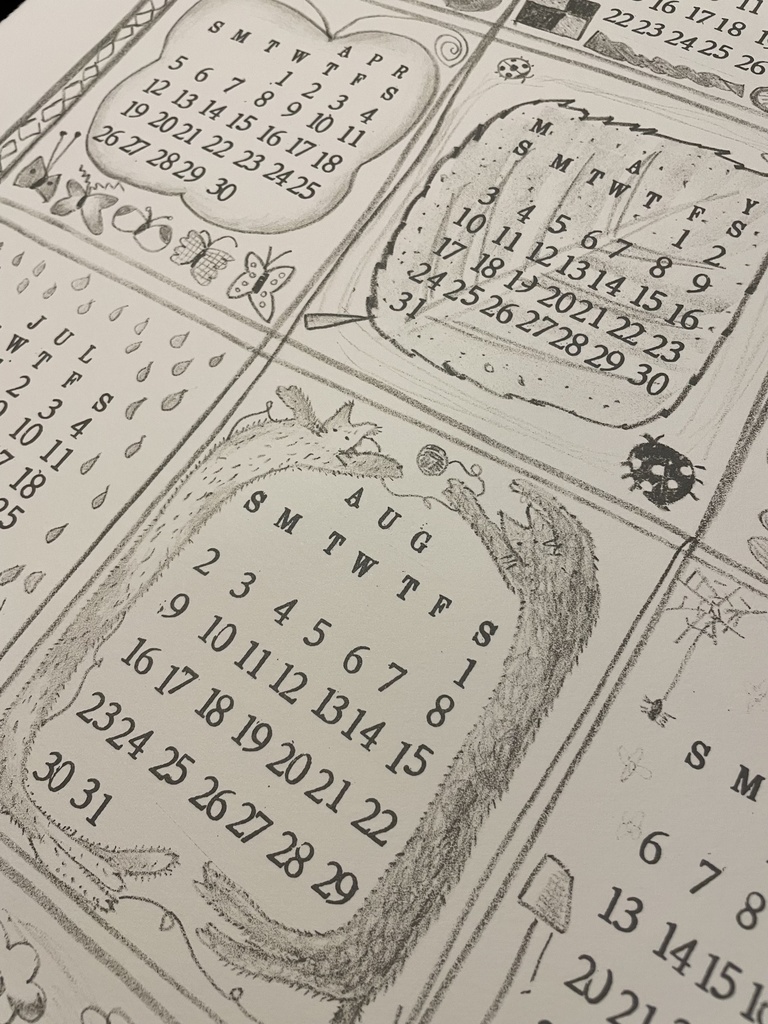 16 17 18
22 23 24 25 26
A P R
S M T W T F S
1 2 3 4
5 6 7 8 9 10 11
12 13 14 15 16 17 18
19 20 21 22 23 24 25
26 27 28 29 30
M A Y
S M T W T F S
1 2
3 4 5 6 7 8 9
10 11 12 13 14 15 16
17 18 19 20 21 22 23
24 25 26 27 28 29 30
31
J U L
W T F S
2 3 4
10 11
18
25
A U G
S M T W T F S
1
2 3 4 5 6 7 8
9 10 11 12 13 14 15
16 17 18 19 20 21 22
23 24 25 26 27 28 29
30 31
S M
6 7 8
13 14 15
20 21